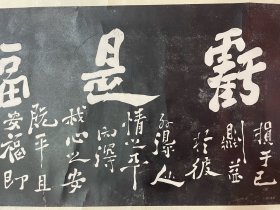 虧是福
損于己
則益
於彼
外得人
情之平
内得
我心之安
既平且
安福即